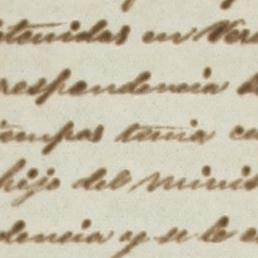 tenidas en Ver
respondencia
iempos tenia
hijo del minis
dencia y se le